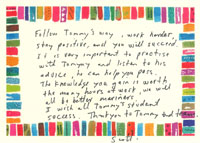 Follow Tommy's way, work harder,
stay positive, and you will succeed.
It is very important to practise
with Tommy and listen to his
advice, he can help you pass.
The knowledge you gain is worth
the many hours of work, we will
all be better mariners
I wish all Tommy's student
success. Thank you to Tommy and
Scott.